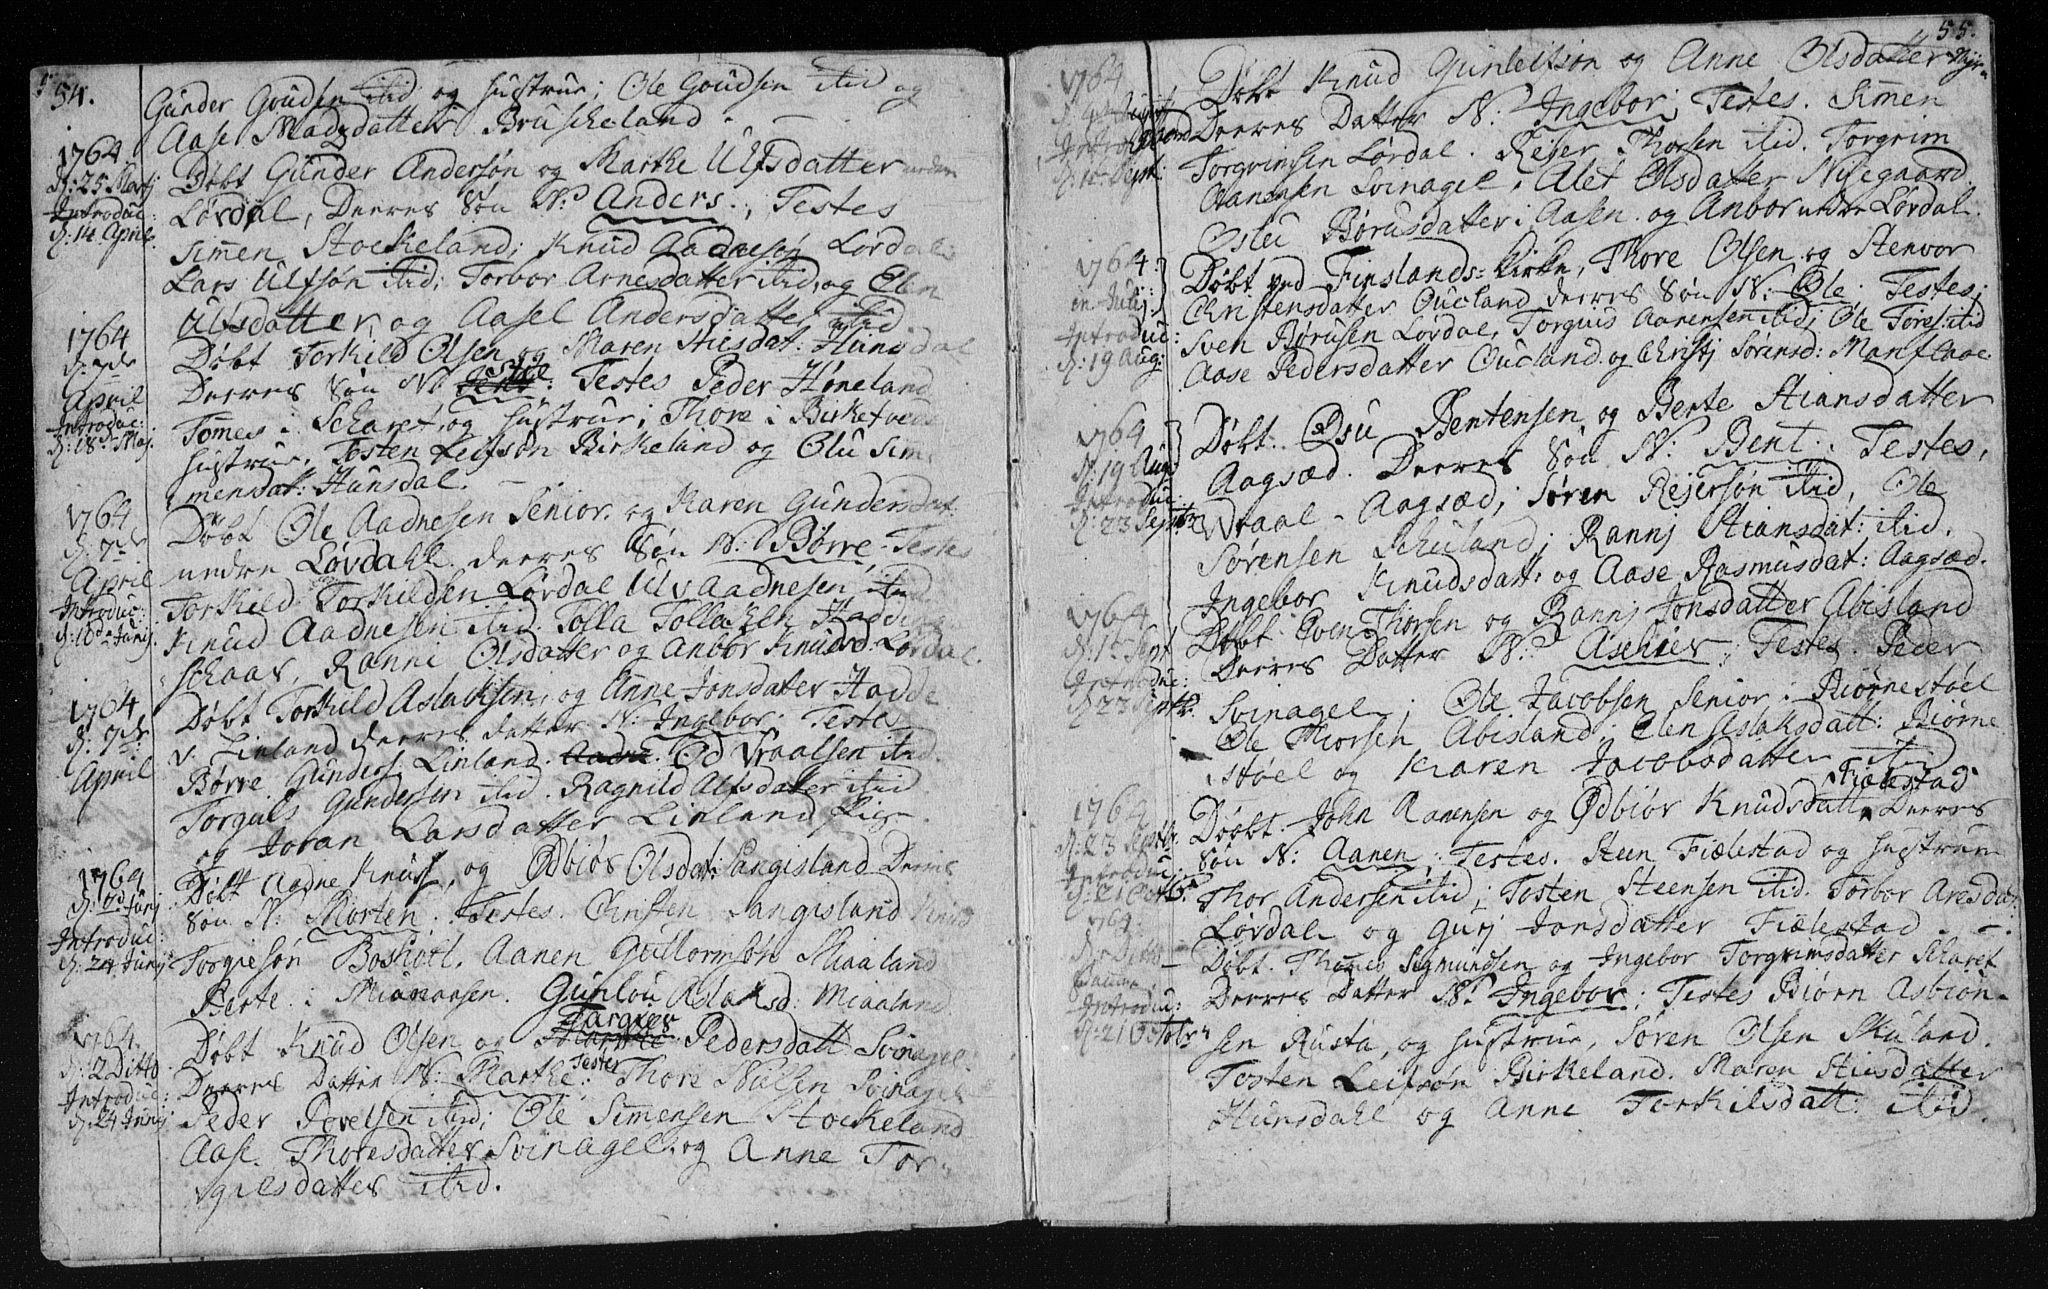 54.
Gunder Goudsen itid og Hustrue; Ole Goudsen itid og
Aase Madzdatter Bruskeland.
1764
d: 25 Martj
Introduc:
d: 14 April
Døbt Gunder Andersøn og Marthe Ulfsdatter neden
Lørdal, Deeres Søn N: Anders., Testes
Simen Stockeland; Knud Aadnesøn Lørdal
Lars Ulfsøn itid; Torbor Arnesdatter itid, og Elen
Ulfsdatter, og Aasel Andersdatter itid.
1764
d: 7de
April
Introduc:
d: 18de Maj.
Døbt Torkild Olsen og Maren Stiesdat: Hunsdal
Deeres Søn N: Stie: Testes Peder Høneland
Tomes i Scharet, og Hustrue; Thore i Birketveds
Hustrue, Tosten Leifsøn Birkeland og Olu Sim-
mensdat: Hunsdal.
1764
d: 7de
April
Introduc:
d: 10de Junj.
Døbt Ole Aadnesen Senior. og Karen Gundersdat:
nedre Lørdahl deeres Søn N: Børre. Testes
Torkild Torkildsen Lørdal Ulv Aadnesen itid
Knud Aadnesen itid. Tolla Tollaksen Hadding
schaar, Ranni Olsdatter og Anbor Knudsd: Lørdal.
1764
d: 7de
April
Døbt Torkild Aslaksen, og Anne Jonsdatter Hadde
v. Linland deeres datter N: Ingebor: Testes
Børre Gunders: Linland. Od Vraalsen itid.
Torguls Gundersen itid. Ragnild Alfsdatter itid
og Joran Larsdatter Linland Pige.
1764
Junj
Introduc:
d: 24 Junj
Døbt Aadne Knuds, og Ødbiør Olsdat: Langisland Deeris
Søn N: Morten. Testes. Christen Langisland Knud
Torgiesøn Aanen Guttormsøn Miaaland
Berte i Gunlou Aslaksd: Miaaland
1764.
d: 2 Ditto
Introduc:
d: 24 Junj
Døbt Knud Olsen og Targier Pedersdatt: Svinagel
Deeres Datter N: Marthe: Testes Thore Nielsen Svinagel
Peder Povelsen itid; Ole Simensen Stockeland
Aase Thoresdatter Svinagel. og Anne Tor-
gilsdatter itid.
55.
1764
Døbt Knud Gunleifsøn og Anne Olsdatter
Deeres Datter N: Ingebor; Testes. Simen
Torgrimsen Lørdal. Rejer Thorsen itid. Torgrim
Hanensen Svinagel, Alet Olsdatter Nyegaard
Oslu Børusdatter i Aasen. og Anbor nedre Lørdal.
1764:
Julij
Introduc:
d: 19 Aug:
Døbt ved Finslands Kirke, Thore Olsen og Stenvor
Christensdatter Oucland deeres Søn N: Ole. Testes;
Sven Børusen Lørdal, Torguus Aanensen itid; Ole Tores: itid
Aase Pedersdatter Oucland og Christj Sørensd:
1764
d: 19 Aug
Introduc:
d: 23 Septr
Døbt: Osu Bentensen og Berte Stiansdatter
Aagsæd. Deeres Søn N: Bent. Testes,
Vraal Aagsæd; Søren Rejersøn itid, Ole
Sørensen Schuland; Rannj Stiansdat: itid.
Ingebor Knudsdatt: og Aase Rasmusdat: Aagsæd.
1764
d: 1te Sept
Introduc:
d: 23 Septr
Døbt: Even Thorsen og Rannj Jonsdatter Abisland
Deeres Datter N: Aschier, Testes. Peder
Svinagel; Ole Jacobsen Senior i Biørnestøel
Ole Thorsen Abisland; Elen Aslaksdatt: Biørne
støel og Karen Jacobsdatter itid
1764
d: 23 Septr
Introduc:
d: 21 Octb:
Døøbt. John Aanensen og Ødbiør Knudsdatt Fiælestad Deeres
Søn N: Aanen; Testes. Steen Fiælestad og Hustrue
Thor Andersen itid; Tosten Steensen itid. Torbor Aresdat:
Lørdal og Gurj Jonsdatter Fiælestad
1764.
Introduc:
d: 21 Octobr
Døbt. Thomes Sigmundsen og Ingebor Torgrimsdatter Scharet
Deeres Datter N: Ingebor; Testes Biørn Asbiøn-
sen Rusta, og Hustrue, Søren Olsen Skuland.
Tosten Leifsøn Birkeland. Maren Stiasdatter
Hunsdahl og Anne Torkilsdatt: itid.